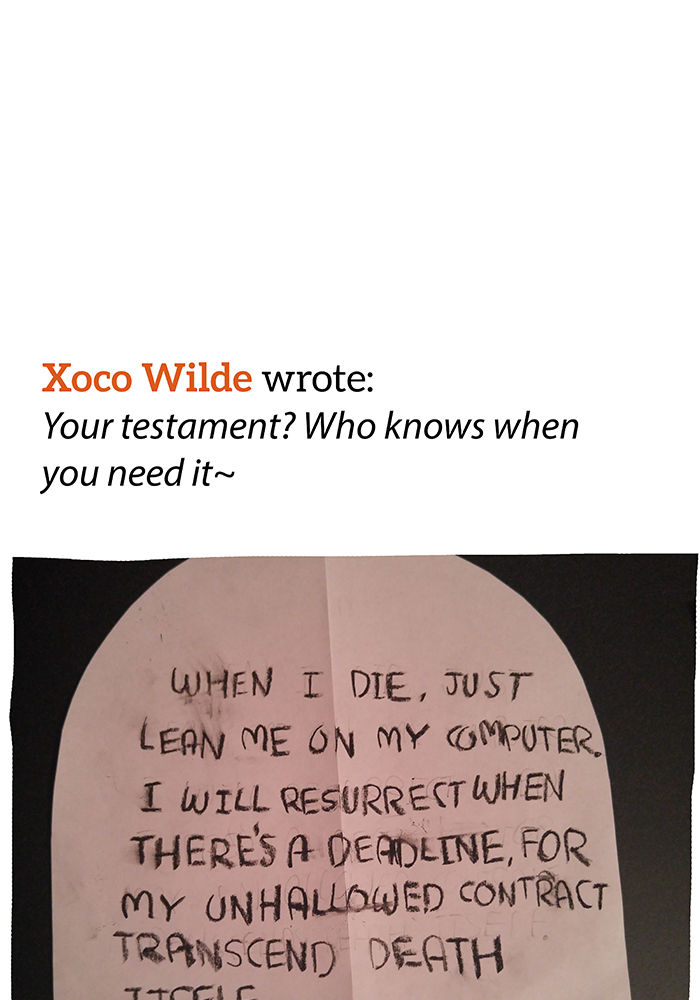 Xoco Wilde wrote:
Your testament? Who knows when
you need it~
WHEN I DIE, JUST
LEAN ME ON MY COMPUTER.
I WILL RESURRECT WHEN
THERE'S A DEADLINE, FOR
MY UNHALLOWED CONTRACT
TRANSCEND DEATH
ITSELF